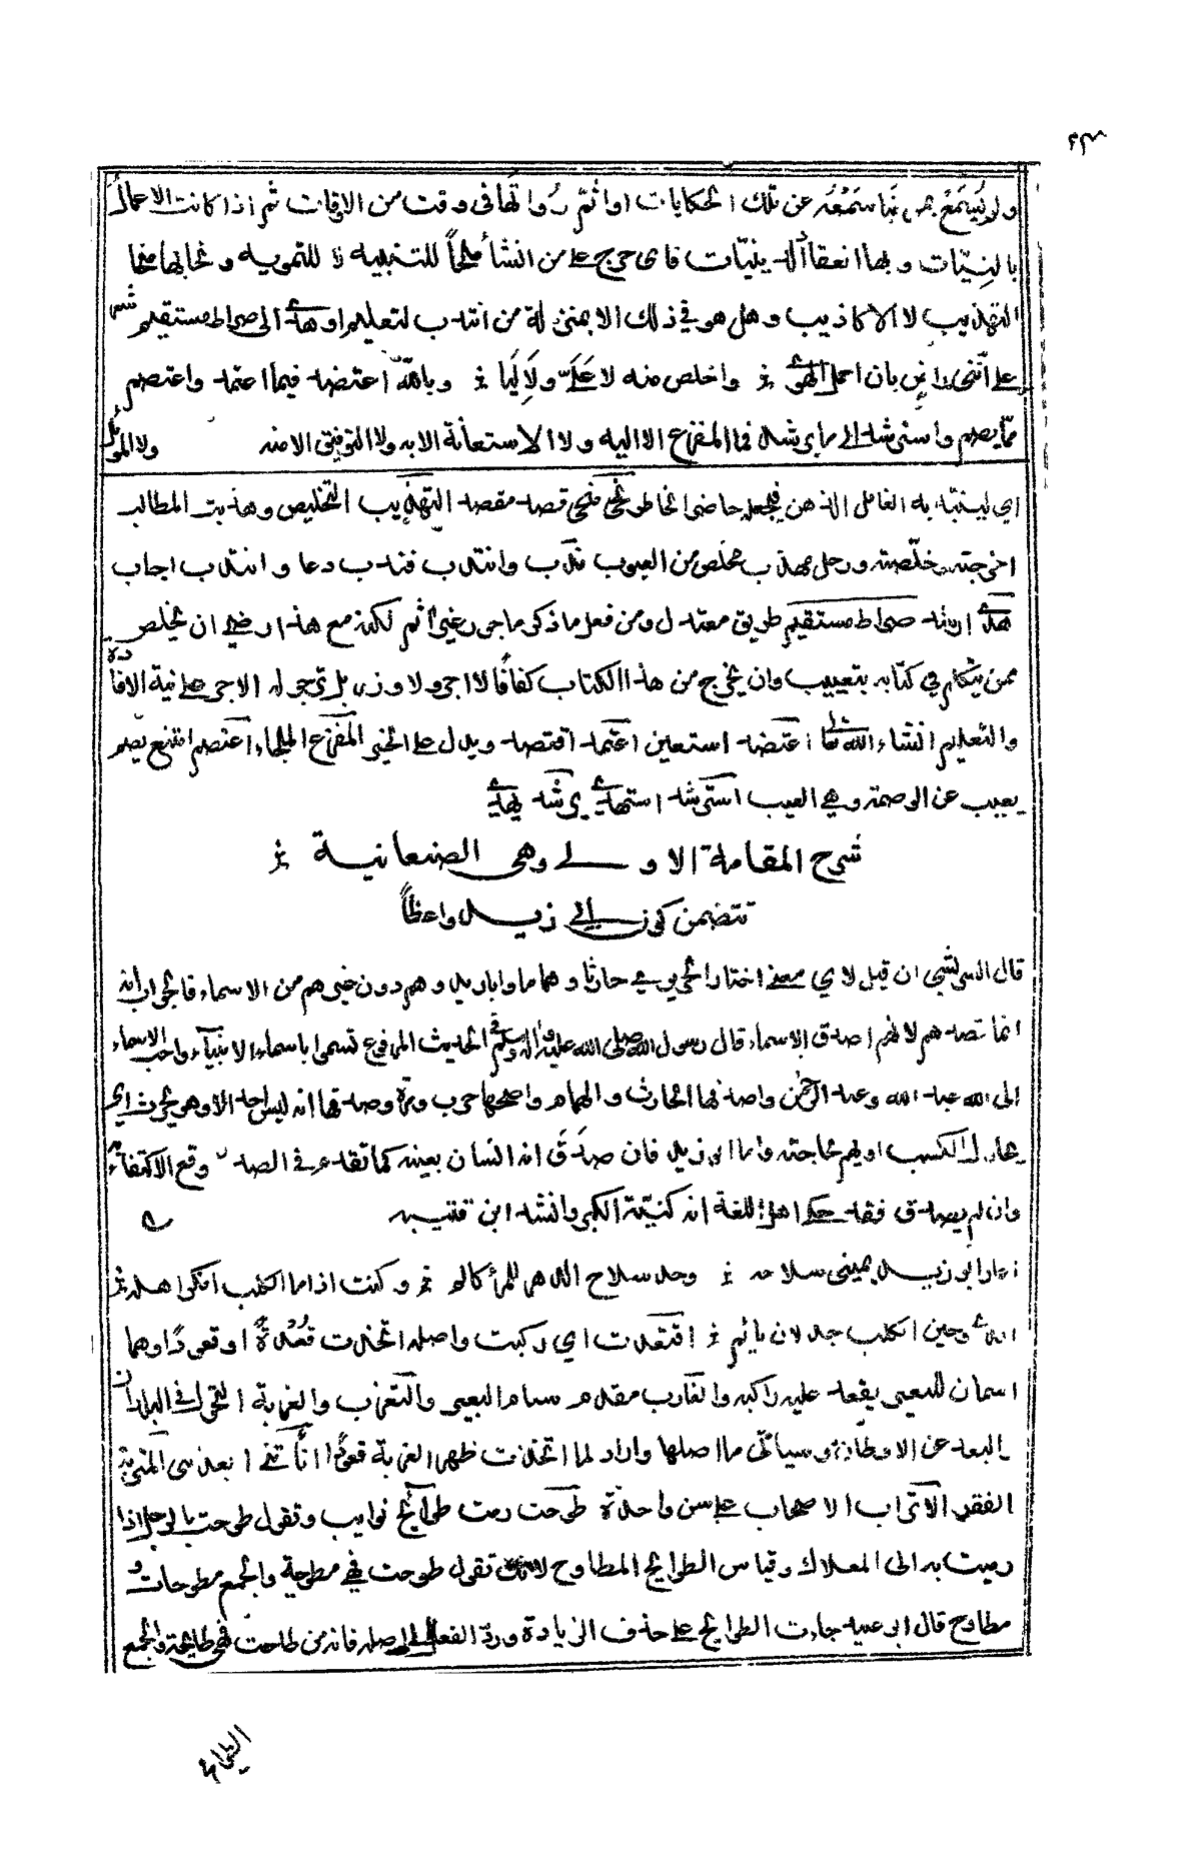 ولم يُسمَعْ بمن نبا سَمْعُه عن تلك الحكايات او اثّم رُواتها فى وقت من الاوقات ثم اذا كانت الاعمالُ
بالنيّات وبها انعقاد الدينيّات فاى حرج على من انشأ مُلحاً للتنبيه لا للتمويه ونحا بها منحا
التهذيب لا الاكاذيب وهل هو في ذلك الا بمنزلة من انتدب لتعليم او هدى الى صراط مستقيم شعر
على أننى راضٍ بان احمل الهوى ؛ واخلص منه لا عَلَيّ ولا لِيَا ؛ وبالله اعتضد فيما اعتمد واعتصم
ممّا يصم واسترشد الى ما يرشد فما المفزع الا اليه ولا الاستعانة الا به ولا التوفيق الا منه ولا الموئل
اي لينتبه به الغافل الذهن فيجعله حاضر الخاطر نحى منحى قصد مقصد التهذيب التخليص وهذبت المطالب
اخرجته وخلّصته ورجل مهذب مخلص من العيوب ندب وانتدب فندب دعا وانتدب اجاب
هدى ارشد صراط مستقيم طريق معتدل ومن فعل ما ذكر ماجور غير اثم لكنه مع هذا رضي ان يخلص
ممن يتكلم في كتابه بتعييب وان يخرج من هذا الكتاب كفافًا لا اجر ولا وزر بل يرجى له الاجر على نية الافادة
والتعليم انشاء الله تعا اعتضد استعين اعتمد اقتصد ويدل على الخير المفزع الملجاء اعتصم امتنع يصم
يعيب من الوصمة وهي العيب استرشد استهدي يرشد يهدي
شرح المقامة الاولى وهى الصنعانية ؛
تتضمن كون ابى زيد واعظاً
قال الشريشي ان قيل لاي معنى اختار الحريري حارثا وهماما وابا زيد وهم دون غيرهم من الاسماء فالجواب انه
انما قصدهم لانهم اصدق الاسماء قال رسول الله صلى الله عليه واله وسلم في الحديث المرفوع تسموا باسماء الانبيآء واحب الاسماء
الى الله عبد الله وعبد الرحمن واصدقها الحارث والهمام واقبحها حرب ومرة وصدقها انه ليس احد الا وهو يحرث اي
يحاول الكسب او يهم بحاجته واما ابو زيد فان صَدَقَ انه انسان بعينه كما تقدم في الصدر وقع الاكتفاء به
وان لم يصدق فقد حكى اهل اللغة انه كنية الكبر وانشد ابن قتيبه
اعار ابو زيد يمينى سلاحه ؛ وحد سلاح الدهر للمرء كالم ؛ وكنت اذا ما الكلب انكر اهله ؛
افدى وحين الكلب جذلان نايم ؛ اقتعدت اي ركبت واصله اتخذت قُعْدةً او قعودًا وهما
اسمان للبعير يقعد عليه راكبه والغارب مقدم سنام البعير والتغرب والغربة التحول في البلدان
البعد عن الاوطان وسياتى ما اصلها واراد لما اتخذت ظهر الغربة قعودًا انأتنى ابعدنى المتربة
الفقر الاتراب الاصحاب على سن واحدة طوّحت رمت طوائح نوايب وتقول طوحت بالرجل اذا
رميت به الى المهلاك وقياس الطوايح المطاوح لانك تقول طوحت فهي مطوحة والجمع مطوحات و
مطاوح قال ابو عبيد جاءت الطوايح على حذف الزيادة وردّ الفعل الى اصله فانه من طاحت فهى طايحة والجمع